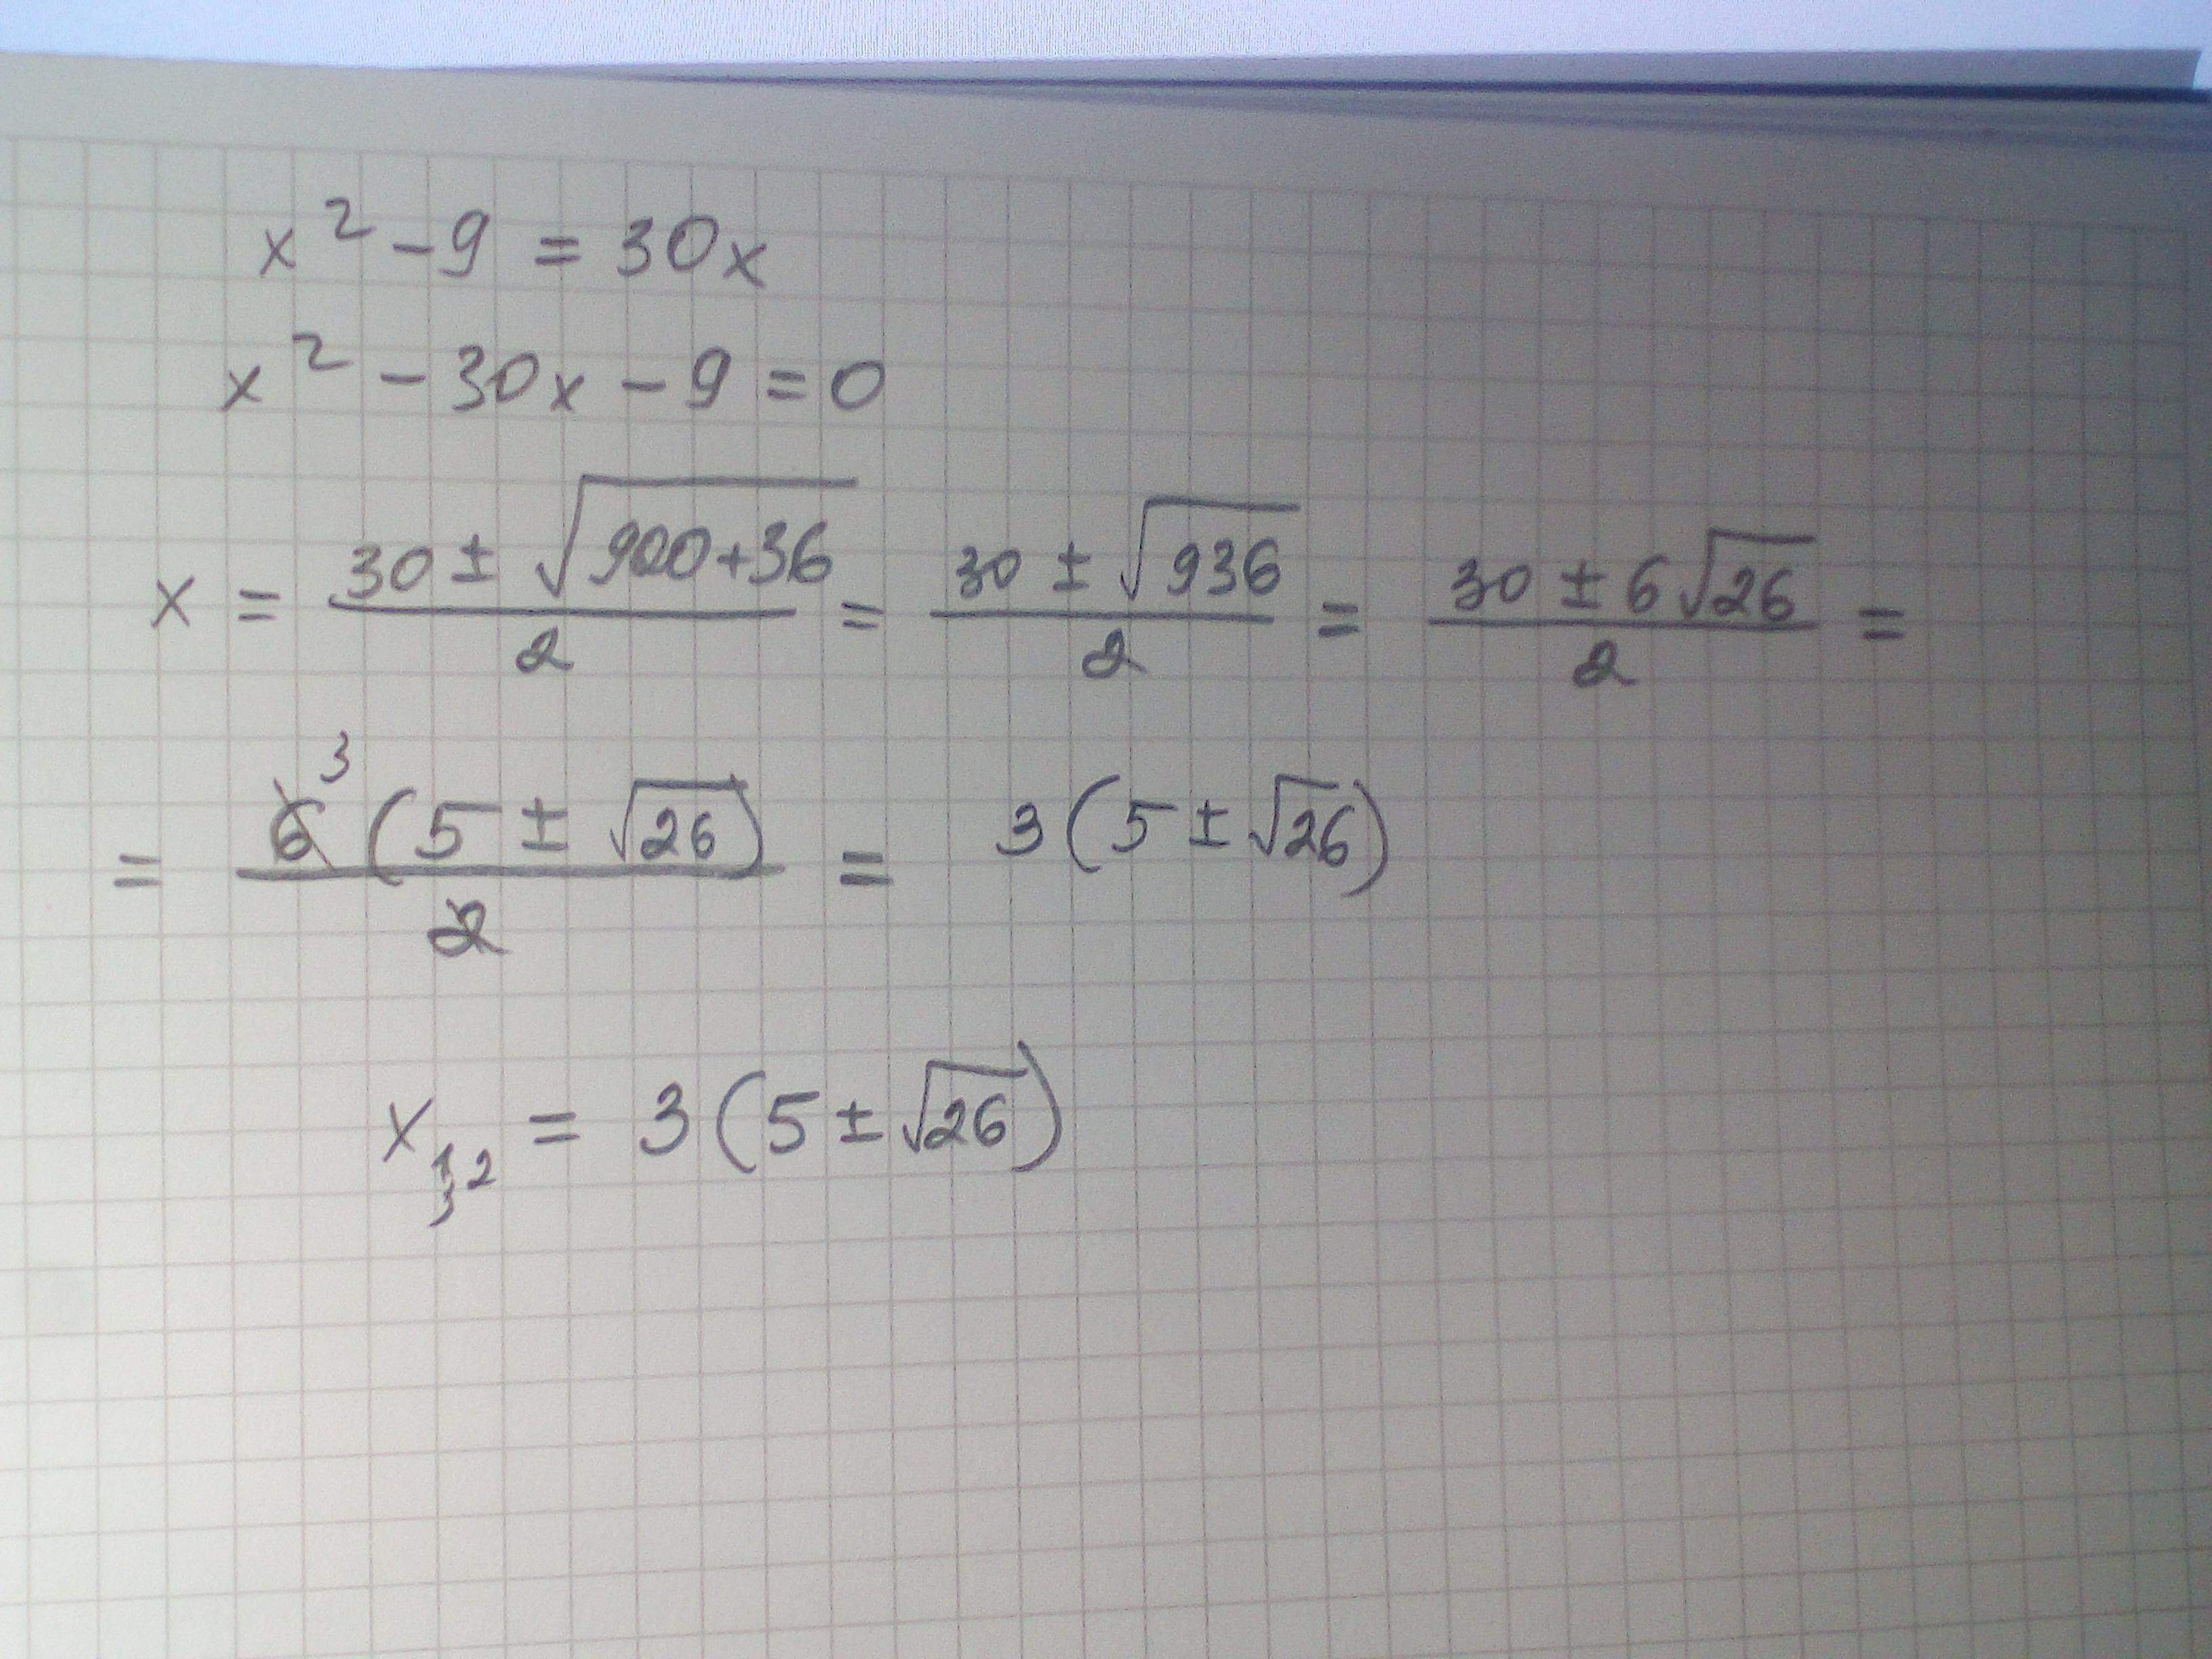 x² - 9 = 30x
x² - 30x - 9 = 0
x = (30 ± √(900+36))/2 = (30 ± √936)/2 = (30 ± 6√26)/2 =
= 6³(5 ± √26)/2 = 3(5 ± √26)
x₁,₂ = 3(5 ± √26)